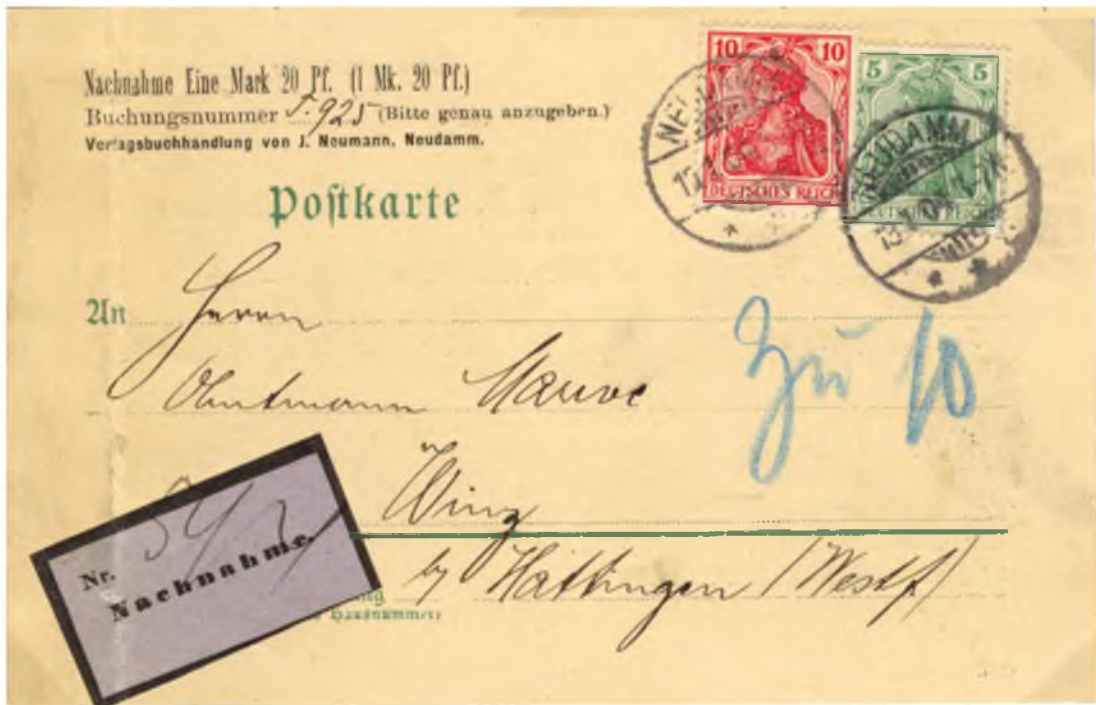 Nachnahme Eine Mark 20 Pf. (1 Mk. 20 Pf.)
Buchungsnummer J. 925 (Bitte genau anzugeben.)
Verlagsbuchhandlung von J. Neumann, Neudamm.
10 10
DEUTSCHES REICH
5 5
DEUTSCHES REICH
NEUDAMM
NEUDAMM
Poſtkarte
An Herrn
Mauve
Zu 10
Winz
by Hattingen (Westf)
Nr.
Nachnahme.
Hausnummer)